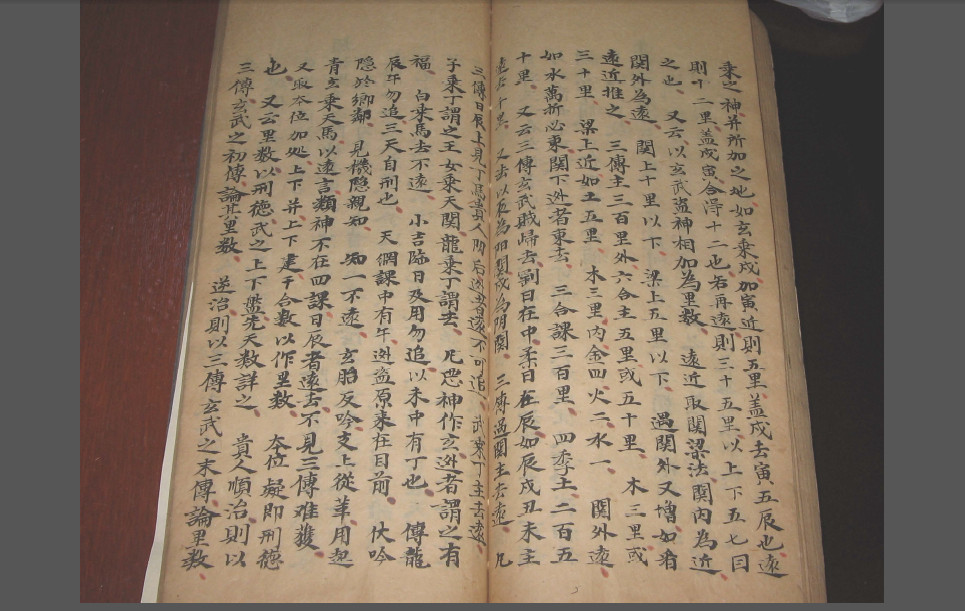 乘之神并所加之地如玄乘戍加寅近則五里盖戍去寅五辰也遠
則十二里盖戍寅合淂十二也若再遠則三十五里以上下五七囙
之也 又云以玄武盗神相加為里數 遠近取関梁法関内為近
関外為遠 関上十里以下 梁上五里以下 遇関外又增如看
遠近推之 三傳主三百里外六合主五里或五十里 木三里或
三十里 梁上近如土五里 木三里内金四火二水一 関外遠
如水萬折必東関下迯者東去 三合課三百里 四季土二百五
十里 又云三傳玄武賊歸去剛日在中柔日在辰如辰戍丑未主
遠去十里 又去以辰為関戍為関 三傳過関主去遠 凡
三傳日辰上見丁馬貴人陰后迯者遠不可追 武乘丁主去遠
子乘丁謂之王女乘天関龍乘丁謂去 凡惡神作玄迯者謂之有
福 白乘馬去不遠 小吉臨日及用勿追以未中有丁也 傳龍
辰午勿追三天自刑也 天網課中有午迯盗原來在目前 伏吟
隐於鄉鄰 見機隐親知 知一不遠 玄胎反吟支上從革用起
青玄乘天馬以遠言類神不在四課日辰者遠去不見三傳难獲
又取夲位加处上下并上下建干合數以作里數 夲位凝即刑德
也 又云里数以刑德武之上下盤先天数詳之 貴人順治則以
三傳玄武之初傳論其里数 逆治則以三傳玄武之末傳論里数